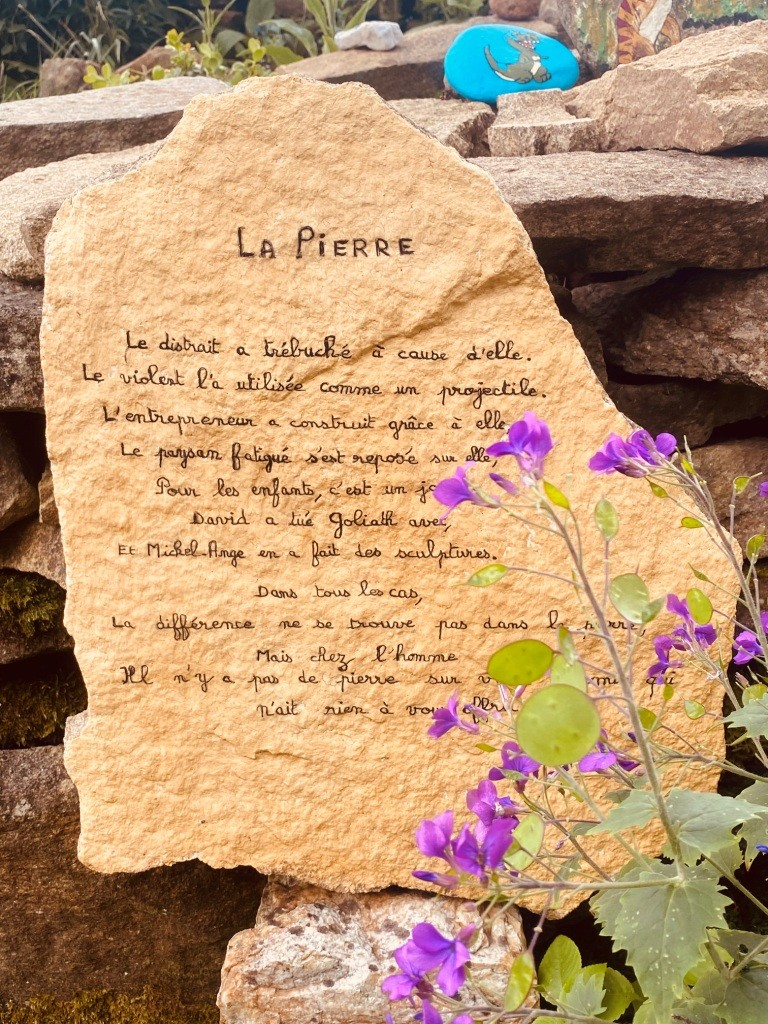 LA PIERRE
Le distrait a trébuché à cause d'elle.
Le violent l'a utilisée comme un projectile.
L'entrepreneur a construit grâce à elle,
Le paysan fatigué s'est reposé sur elle,
Pour les enfants, c'est un
David a tué Goliath avec,
Et Michel-Ange en a fait des sculptures.
Dans tous les cas,
La différence ne se trouve pas dans la pierre,
Mais chez l'homme
Il n'y a pas de pierre sur qui
n'ait rien à vous